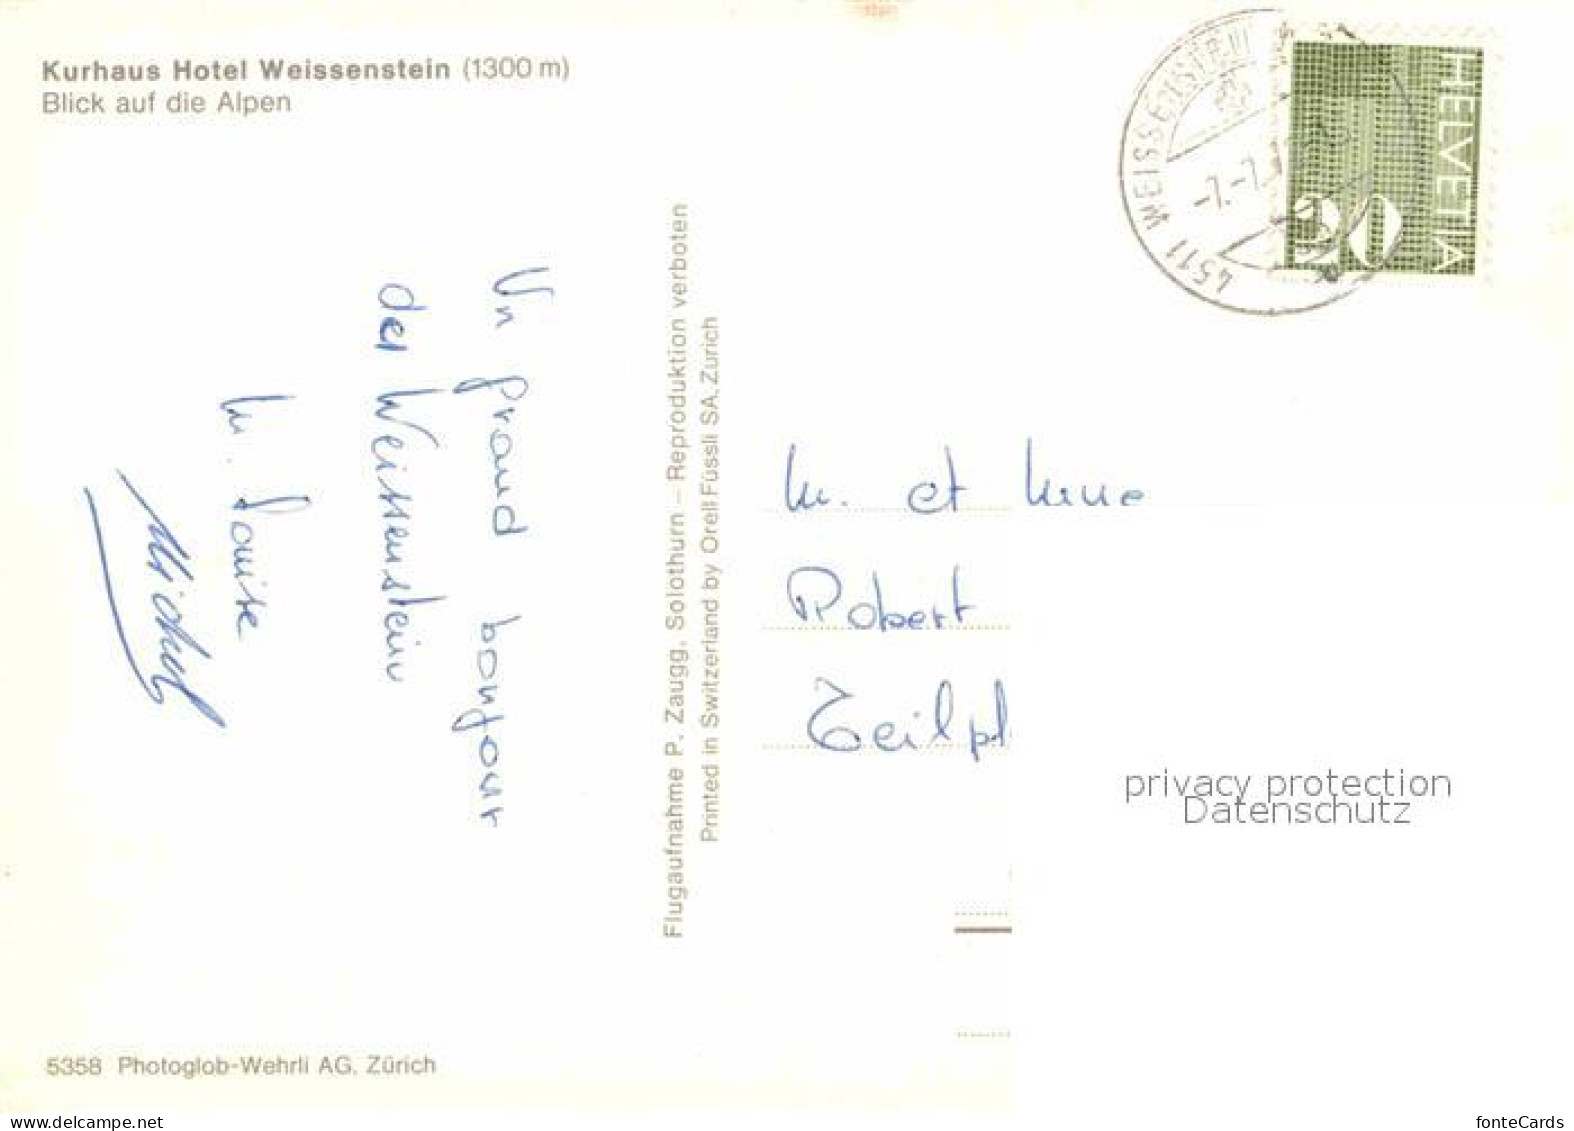 Kurhaus Hotel Weissenstein (1300 m)
Blick auf die Alpen
Un grand bonjour
des Weissenstein
M. Louise
Michel
Flugaufnahme P. Zaugg, Solothurn – Reproduktion verboten
Printed in Switzerland by Orell Füssli SA, Zürich
4511 WEISSENSTEIN
-7.-7.1
HELVETIA
M. et Mme
Robert
privacy protection
Datenschutz
5358 Photoglob-Wehrli AG, Zürich
www.delcampe.net
fonteCards